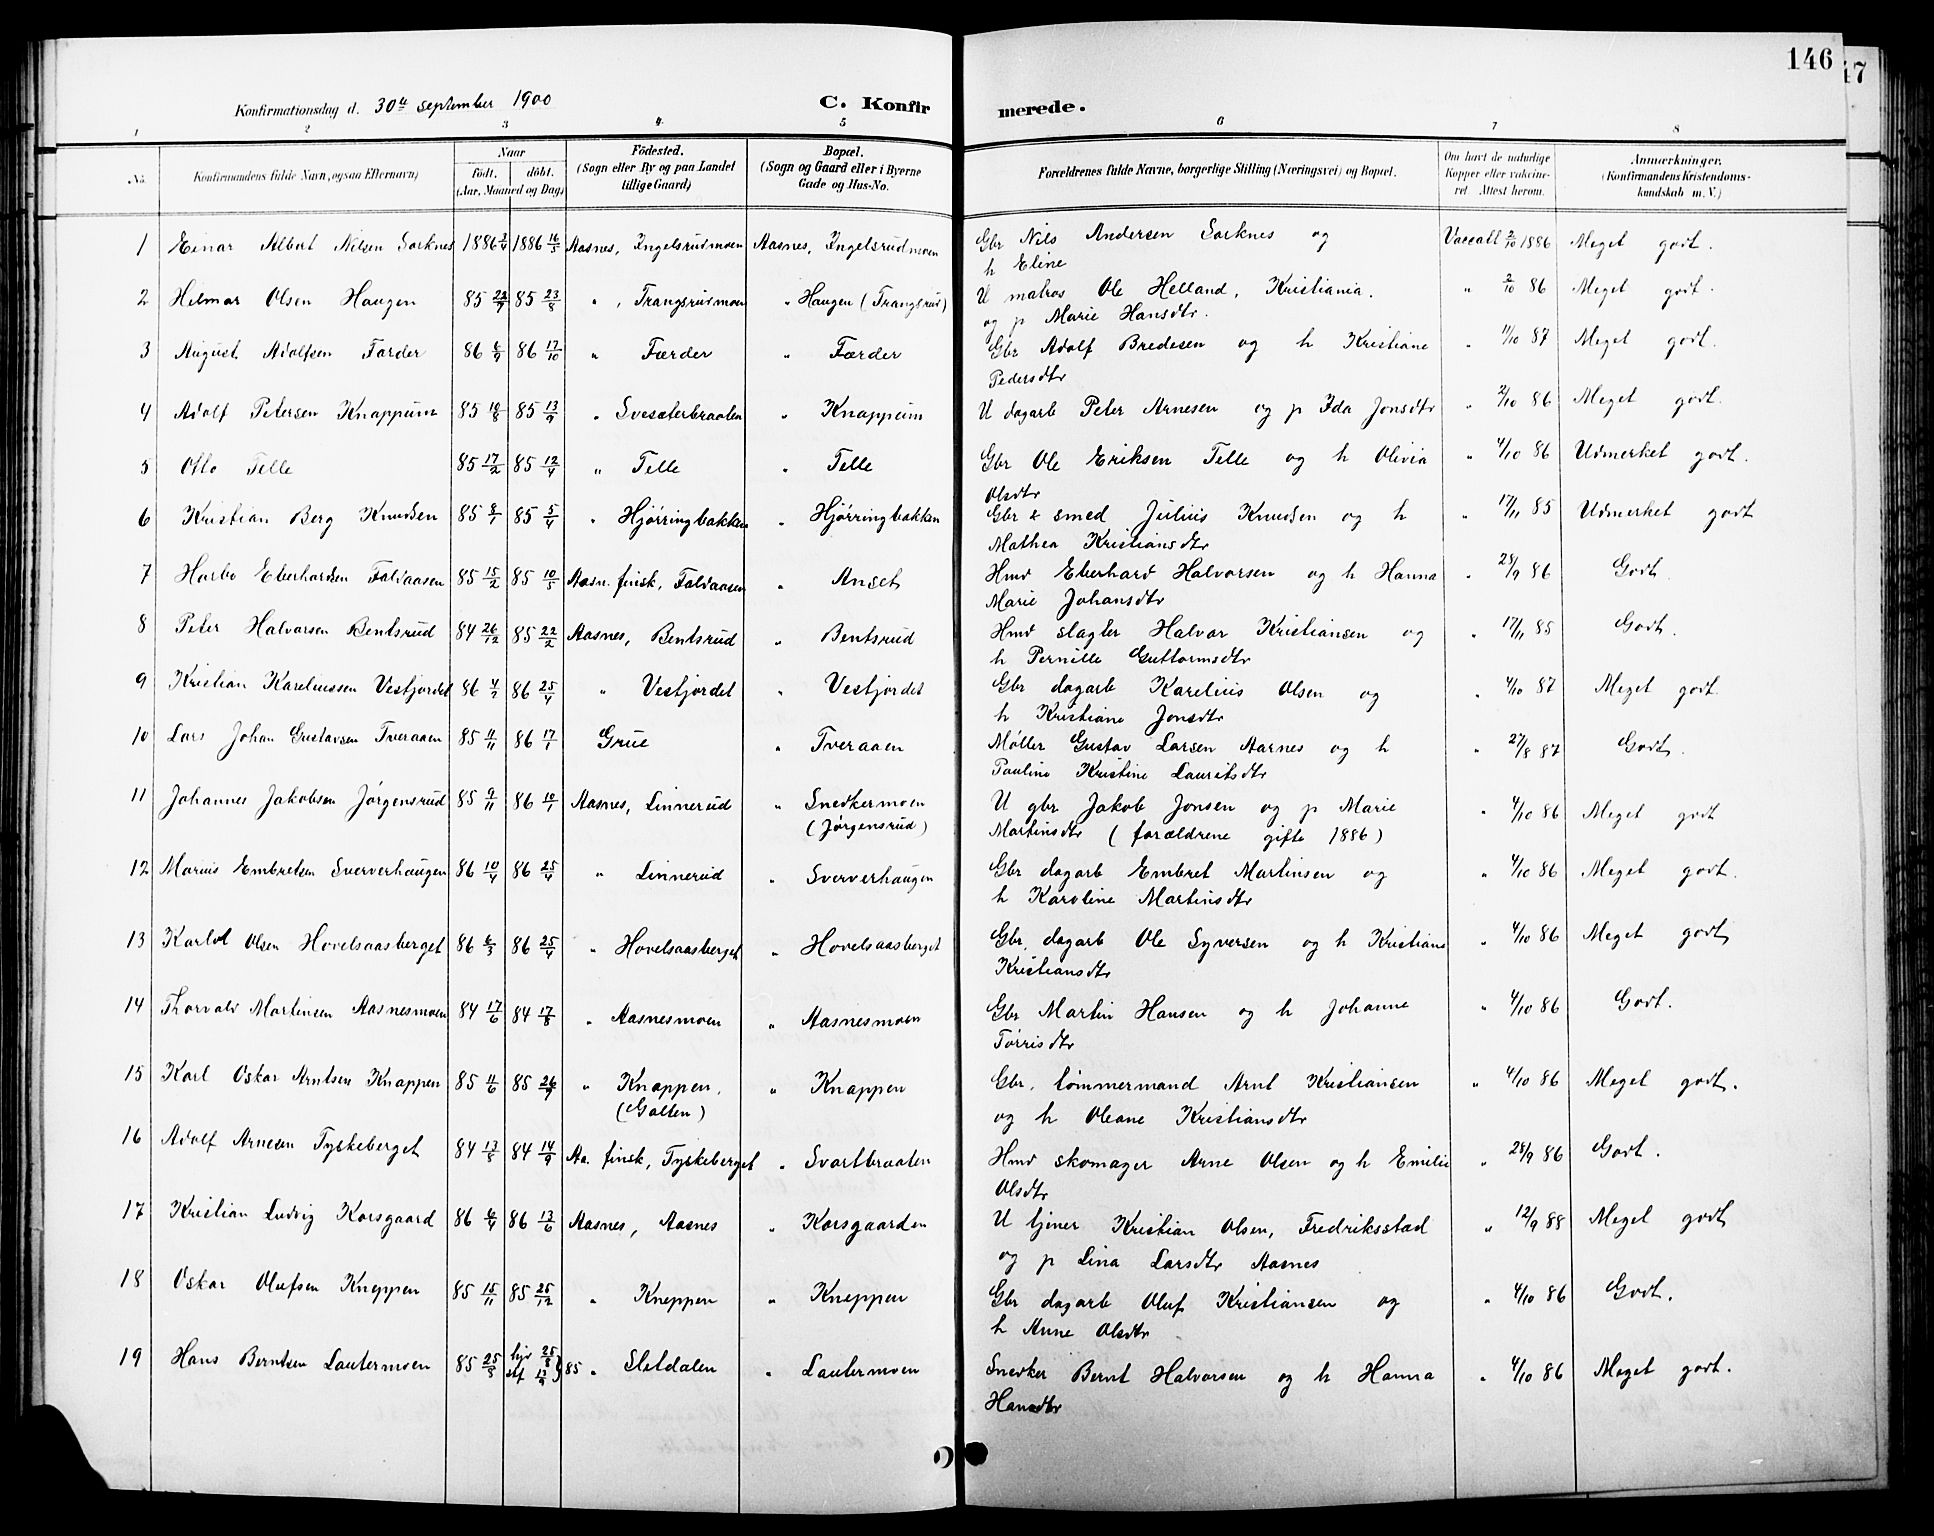 146
17
Konfirmationsdag d. 30te september 1900
C. Konfir
merede.
1 2 3 4 5 6 7 8
No. Konfirmandens fulde Navn, ogsaa Efternavn) Naar født. døbt. (Aar, Maaned og Dag) Födested. (Sogn eller By og paa Landet tillige Gaard) Bopæl. (Sogn og Gaard eller i Byerne Gade og Hus-No. Forældrenes fulde Navne, borgerlige Stilling (Næringsvei) og Bopæl. Om havt de naturlige Kopper eller vakcineret. Attest herom. Anmærkninger. (Konfirmandens Kristendomskundskab m. V.)
1 Einar Albert Nilsen Sorknes 1886 2/4 1886 16/5 Aasnes, Ingelsrudmoen Aasnes, Ingelsrudmoen Gbr Nils Andersen Sorknes og Vaccatt 2/10 1886 Meget godt.
h Eline
2 Hilmar Olsen Haugen 85 22/7 85 23/8 " , Trangsrudmoen " Haugen (Trangsrud) U matros Ole Helland, Kristiania. " 2/10 86 Meget godt.
og p Marie Hansdtr.
3 August Adolfsen Førder 86 6/9 86 17/10 " Færder " Færder Gbr Adolf Bredesen og h Kristiane " 11/10 87 Meget godt.
Pedersdtr
4 Adolf Petersen Knappum 85 18/8 85 13/9 " Svesæterbraaten " Knappum U dagarb Peter Arnesen og p Ida Jonsdtr " 2/10 86 Meget godt.
5 Otto Telle 85 17/2 85 12/4 " Telle " Telle Gbr Ole Eriksen Telle og h Olivia " 4/10 86 Udmerket godt.
Olsdtr
6 Kristian Berg Knudsen 85 8/1 85 5/4 " Hjørringbakken " Hjørringbakken Gbr & smed Julius Knudsen og h " 17/11 85 Udmerket godt
Mathea Kristiansdtr
7 Harbo Eberhardsen Faldaasen 85 15/2 85 10/5 Aasn. finsk, Faldaasen " Anset Hmd Eberhard Halvorsen og h Hanna " 28/9 86 Godt
Marie Johansdtr
8 Peter Halvorsen Bentsrud 84 26/12 85 22/2 Aasnes, Bentsrud " Bentsrud Hmd slagter Halvor Kristiansen og " 17/11 85 Godt.
h Pernille Guttormsdtr
9 Kristian Kareliussen Vestjordet 86 4/2 86 25/4 " Vestjordet " Vestjordet Gbr dagarb Karelius Olsen og " 4/10 87 Meget godt.
h Kristiane Jonsdtr
10 Lars Johan Gustavsen Tveraaen 85 11/11 86 17/1 Grue " Tveraaen Møller Gustav Larsen Aarnes og h " 27/8 87 Godt.
Pauline Kristine Lauritsdtr
11 Johannes Jakobsen Jørgensrud 85 9/11 86 10/1 Aasnes, Linnerud " Snedkermoen U gbr Jakob Jonsen og p Marie " 4/10 86 Meget godt
(Jørgensrud) Martinsdtr (forældrene gifte 1886)
12 Marius Embretsen Sververhaugen 86 10/4 86 25/4 " Linnerud " Sververhaugen Gbr dagarb Embret Martinsen og " 4/10 86 Meget godt.
h Karoline Martinsdtr
13 Karl Olsen Hovelsaasberget 86 6/3 86 25/4 " Hovelsaasberget " Hovelsaasberget Gbr. dagarb Ole Syversen og h Kristiane " 4/10 86 Meget godt
Kristiansdtr
14 Thorvald Martinsen Aasnesmoen 84 17/6 84 17/8 " Aasnesmoen " Aasnesmoen Gbr Martin Hansen og h Johanne " 4/10 86 Godt.
Tørrisdtr
15 Karl Oskar Arntsen Knappen 85 11/6 85 26/7 " Knappen, " Knappen Gbr. tømmermand Arnt Kristiansen " 4/10 86 Meget godt.
(Galten) og h Oleane Kristiansdtr
16 Adolf Arnesen Tyskeberget 84 13/8 84 14/9 Aa. finsk, Tyskeberget " Svartbraaten Hmd skomager Arne Olsen og h Emilie " 28/9 86 Godt.
Olsdtr
17 Kristian Ludvig Korsgaard 86 6/4 86 13/6 Aasnes, Aasnes " Korsgaarden U tjener Kristian Olsen, Fredriksstad " 12/9 88 Meget godt
og p Lina Larsdtr Aasnes
18 Oskar Olufsen Kneppen 85 15/11 85 25/12 " Kneppen " Kneppen Gbr dagarb Oluf Kristiansen og " 4/10 86 Godt.
h Anne Olsdtr
19 Hans Berntsen Lautermoen 85 25/8 hjd 25/8 stf 13/9 } 85 " Sletdalen " Lautermoen Snedker Bernt Halvorsen og h Hanna " 4/10 86 Meget godt.
Hansdtr